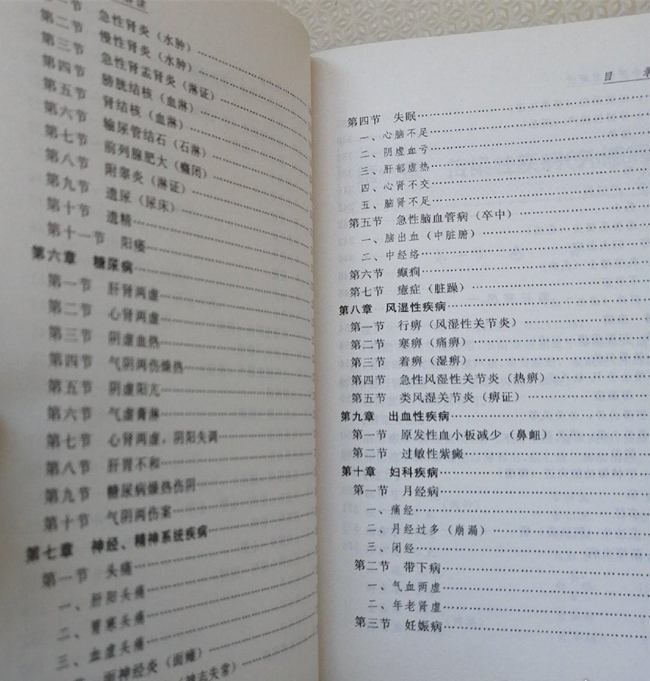 第二节 急性肾炎（水肿）
第三节 慢性肾炎（水肿）
第四节 急性肾盂肾炎（淋证）
第五节 膀胱结核（血淋）
第六节 肾结核（血淋）
第七节 输尿管结石（石淋）
第八节 前列腺肥大（癃闭）
第九节 附睾炎（淋证）
第十节 遗尿（尿床）
第十节 遗精
第十一节 阳痿
第六章 糖尿病
第一节 肝肾两虚
第二节 心肾两虚
第三节 阴虚血热
第四节 气阴两伤燥热
第五节 阴虚阳亢
第六节 气虚膏淋
第七节 心肾两虚，阴阳失调
第八节 肝胃不和
第九节 糖尿病燥热伤阴
第十节 气阴两伤案
第七章 神经、精神系统疾病
第一节 头痛
一、肝阳头痛
二、胃寒头痛
三、血虚头痛
面神经炎（面瘫）
目
第四节 失眠
一、心脑不足
二、阴虚血亏
三、肝郁虚热
四、心肾不交
五、脑肾不足
第五节 急性脑血管病（卒中）
一、脑出血（中脏腑）
二、中经络
第六节 癫痫
第七节 癔症（脏躁）
第八章 风湿性疾病
第一节 行痹（风湿性关节炎）
第二节 寒痹（痛痹）
第三节 着痹（湿痹）
第四节 急性风湿性关节炎（热痹）
第五节 类风湿关节炎（痹证）
第九章 出血性疾病
第一节 原发性血小板减少（鼻衄）
第二节 过敏性紫癜
第十章 妇科疾病
第一节 月经病
一、痛经
二、月经过多（崩漏）
三、闭经
第二节 带下病
一、气血两虚
二、年老肾虚
第三节 妊娠病